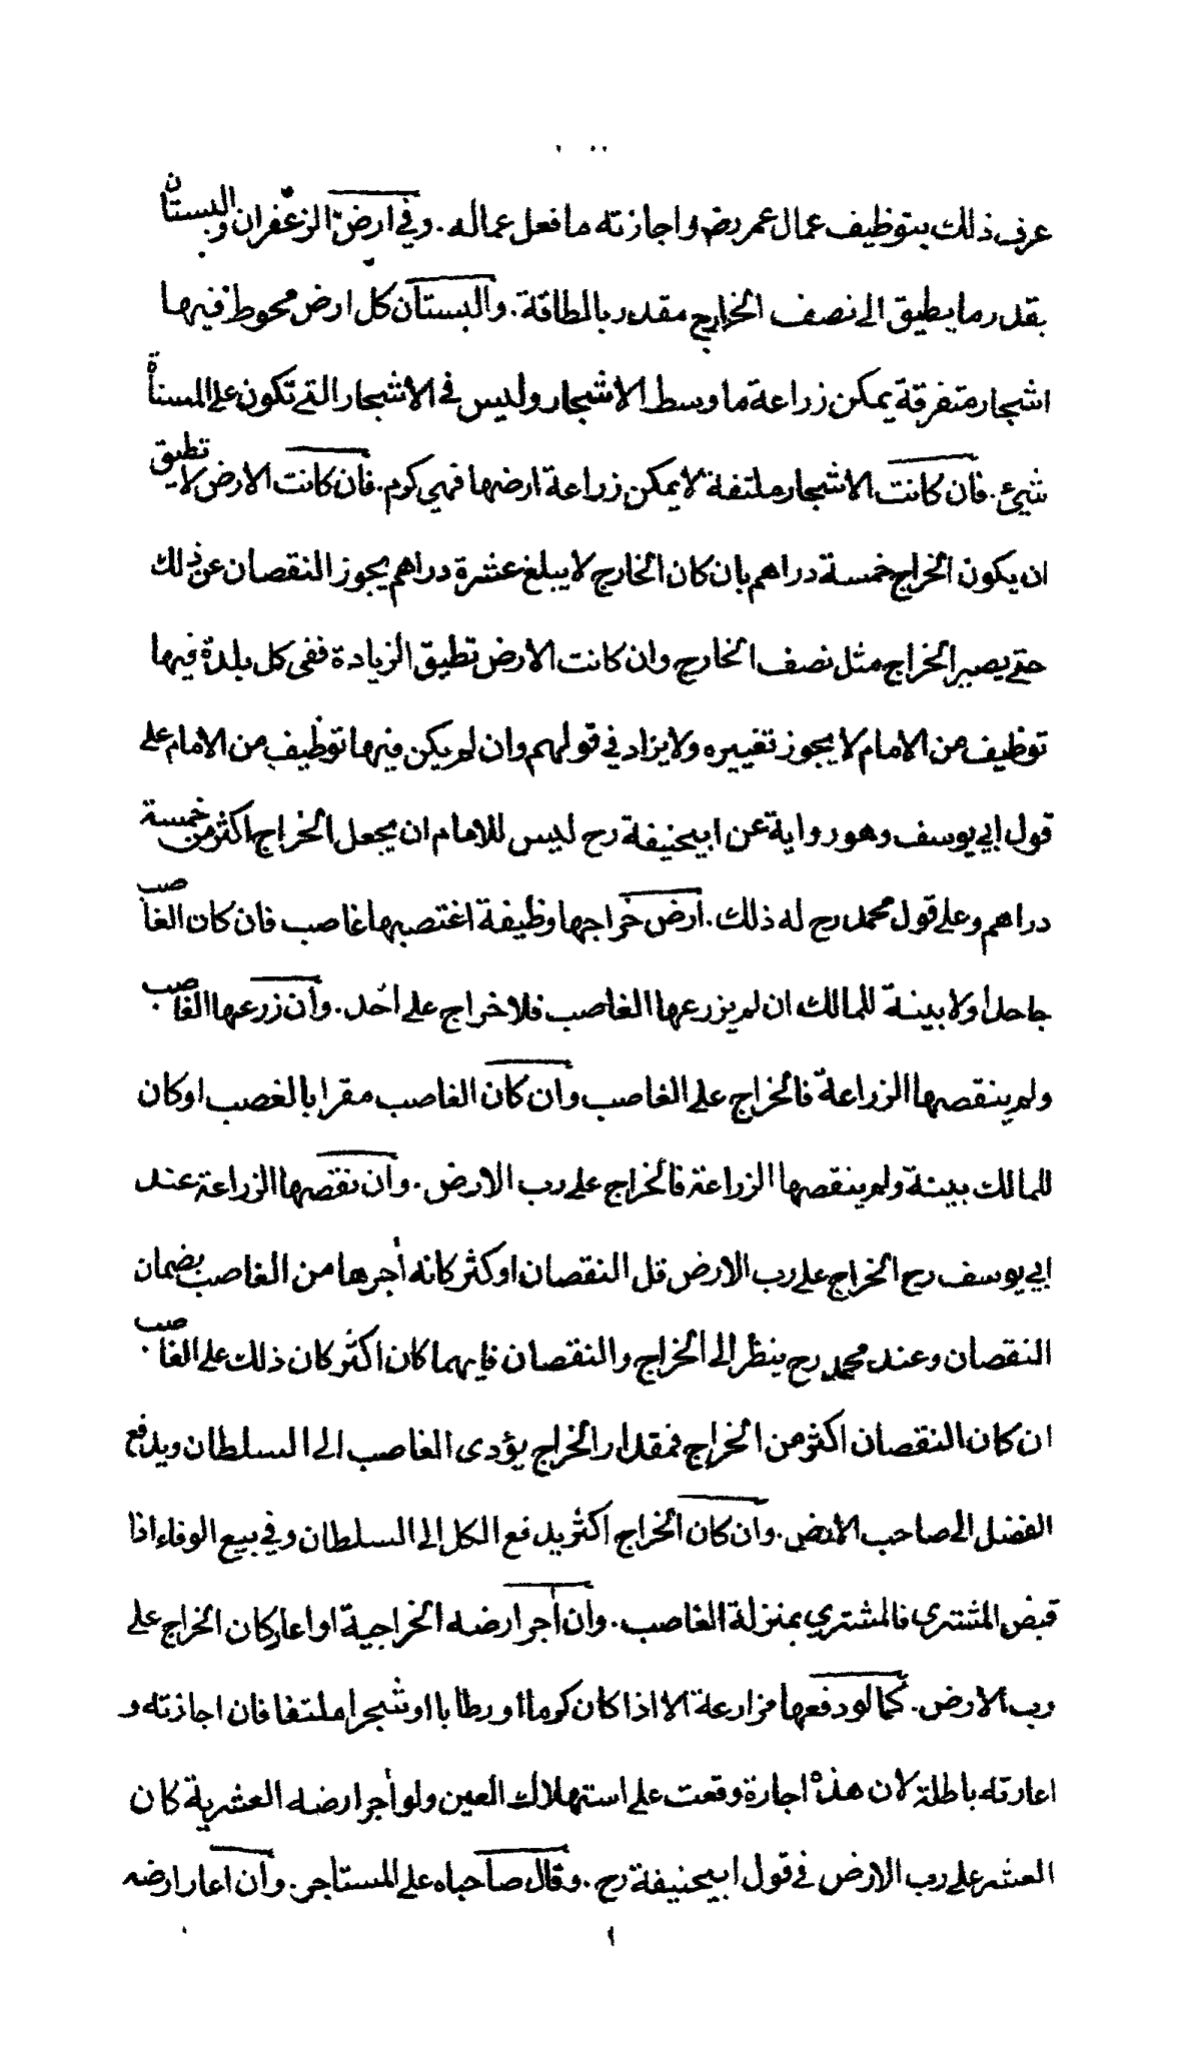 عرف ذلك بتوظيف عمال عمر رض واجازته ما فعل عماله . وفي ارض الزعفران والبستان
بقدر ما يطيق الى نصف الخارج مقدر بالطاقة . والبستان كل ارض محوط فيها
اشجار متفرقة يمكن زراعة ما وسط الاشجار وليس في الاشجار التي تكون على المسناة
شيئ . فان كانت الاشجار ملتفة لا يمكن زراعة ارضها فهي كرم . فان كانت الارض لا تطيق
ان يكون الخراج خمسة دراهم بان كان الخارج لا يبلغ عشرة دراهم يجوز النقصان عن ذلك
حتى يصير الخراج مثل نصف الخارج وان كانت الارض تطيق الزيادة ففي كل بلدة فيها
توظيف من الامام لا يجوز تغييره ولا يزاد في قولهم وان لم يكن فيها توظيف من الامام على
قول ابي يوسف وهو رواية عن ابيحنيفة رح ليس للامام ان يجعل الخراج اكثر من خمسة
دراهم وعلى قول محمد رح له ذلك . ارض خراجها وظيفة اغتصبها غاصب فان كان الغاصب
جاحدا ولا بينة للمالك ان لم يزرعها الغاصب فلا خراج على احد . وان زرعها الغاصب
ولم ينقصها الزراعة فالخراج على الغاصب وان كان الغاصب مقرا بالغصب او كان
للمالك بينة ولم ينقصها الزراعة فالخراج على رب الارض . وان نقصها الزراعة عند
ابي يوسف رح الخراج على رب الارض قل النقصان او كثر كانه أجرها من الغاصب بضمان
النقصان وعند محمد رح ينظر الى الخراج والنقصان فايهما كان اكثر كان ذلك على الغاصب
ان كان النقصان اكثر من الخراج فمقدار الخراج يؤدى الغاصب الى السلطان ويدفع
الفضل الى صاحب الارض . وان كان الخراج اكثر يدفع الكل الى السلطان وفي بيع الوفاء اذا
قبض المشتري فالمشتري بمنزلة الغاصب . وان أجر ارضه الخراجية او اعار كان الخراج على
رب الارض . كما لو دفعها مزارعة الا اذا كان كرما أو رطابا او شجرا ملتفا فان اجازته و
اعارته باطلة لان هذه اجارة وقعت على استهلاك العين ولو أجر ارضه العشرية كان
العشر على رب الارض في قول ابيحنيفة رح . وقال صاحباه على المستاجر . وان اعار ارضه